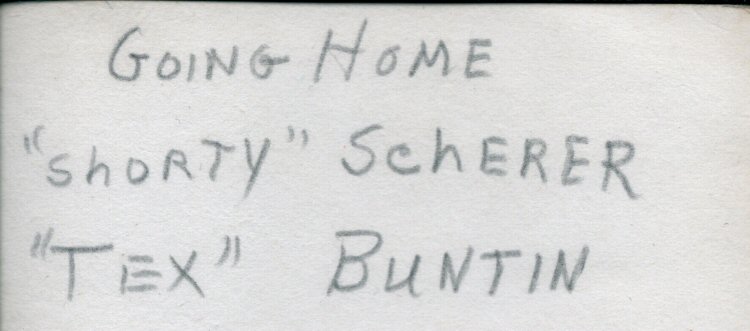 GOING HOME
"ShORTY" SchERER
"TEX" BUNTIN